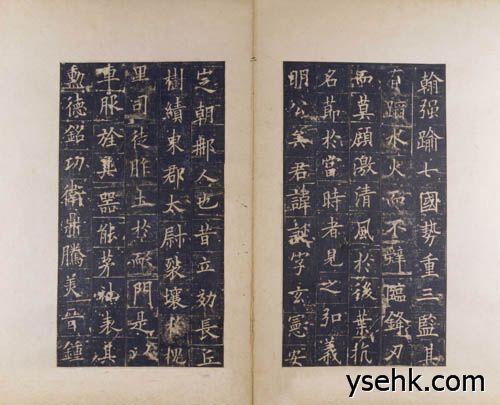 翰强踰七國勢重三監其
有蹈水火而不辭臨鋒刃
而莫顧激清風於後葉抗
名節於當時者見之弘義
明公矣君諱誕字玄憲安
定朝那人也昔立効長丘
樹績東郡太尉裂壤於槐
里司徒胙土於耏門是以
車服旌其器能茅社表其
勲德銘功衛鼎騰美晉鍾
ysehk.com